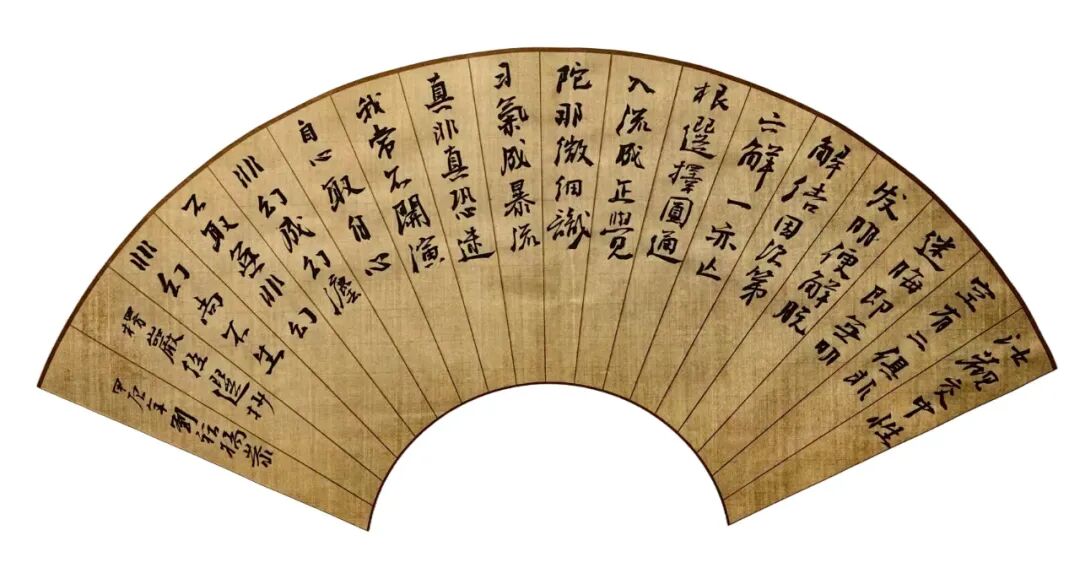 汝觀交中性
空有二俱非
迷晦即無明
发明便解脱
解结因次第
六解一亦亡
根選擇圓通
入流成正覺
陀那微细識
习氣成暴流
真非真恐迷
我常不開演
自心取自心
非幻成幻塵
不取無非幻
非幻尚不生
楞嚴经選抄
甲辰年劉